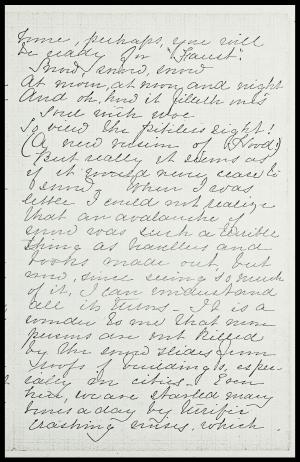 time, perhaps, you will
be ready for "Faust".
Snow, snow, snow
At morn, at noon, and night
And oh, how it filleth one's
Soul with woe
So view the pitiless sight!
(A new version of Hood!)
But really it seems as
if it would never cease to
snow. When I was
little I could not realize
that an avalanche of
snow was such a terrible
thing as travellers and
books made out, but
now, since seeing so much
of it, I can understand
all its terrors. It is a
wonder to me that more
persons are not killed
by the snow slides from
roofs of buildings, espe-
cially in cities. Even
here, we are startled many
times a day by terrific
crashing noises, which